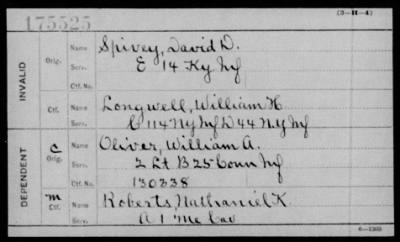 175525
(3-H-4)
INVALID
Orig.
Name Spivey, David D.
Serv. E 14 Ky Inf
Ctf. No.
Ctf.
Name Longwell, William H.
Serv. C 114 N.Y Inf D 44 N.Y Inf
DEPENDENT
C
Orig.
Name Oliver, William A.
Serv. 2 Lt B 25 Conn Inf
Ctf. No. 130338
m
Ctf.
Name Roberts, Nathaniel K.
Serv. A 1 Me Cav
6-1363